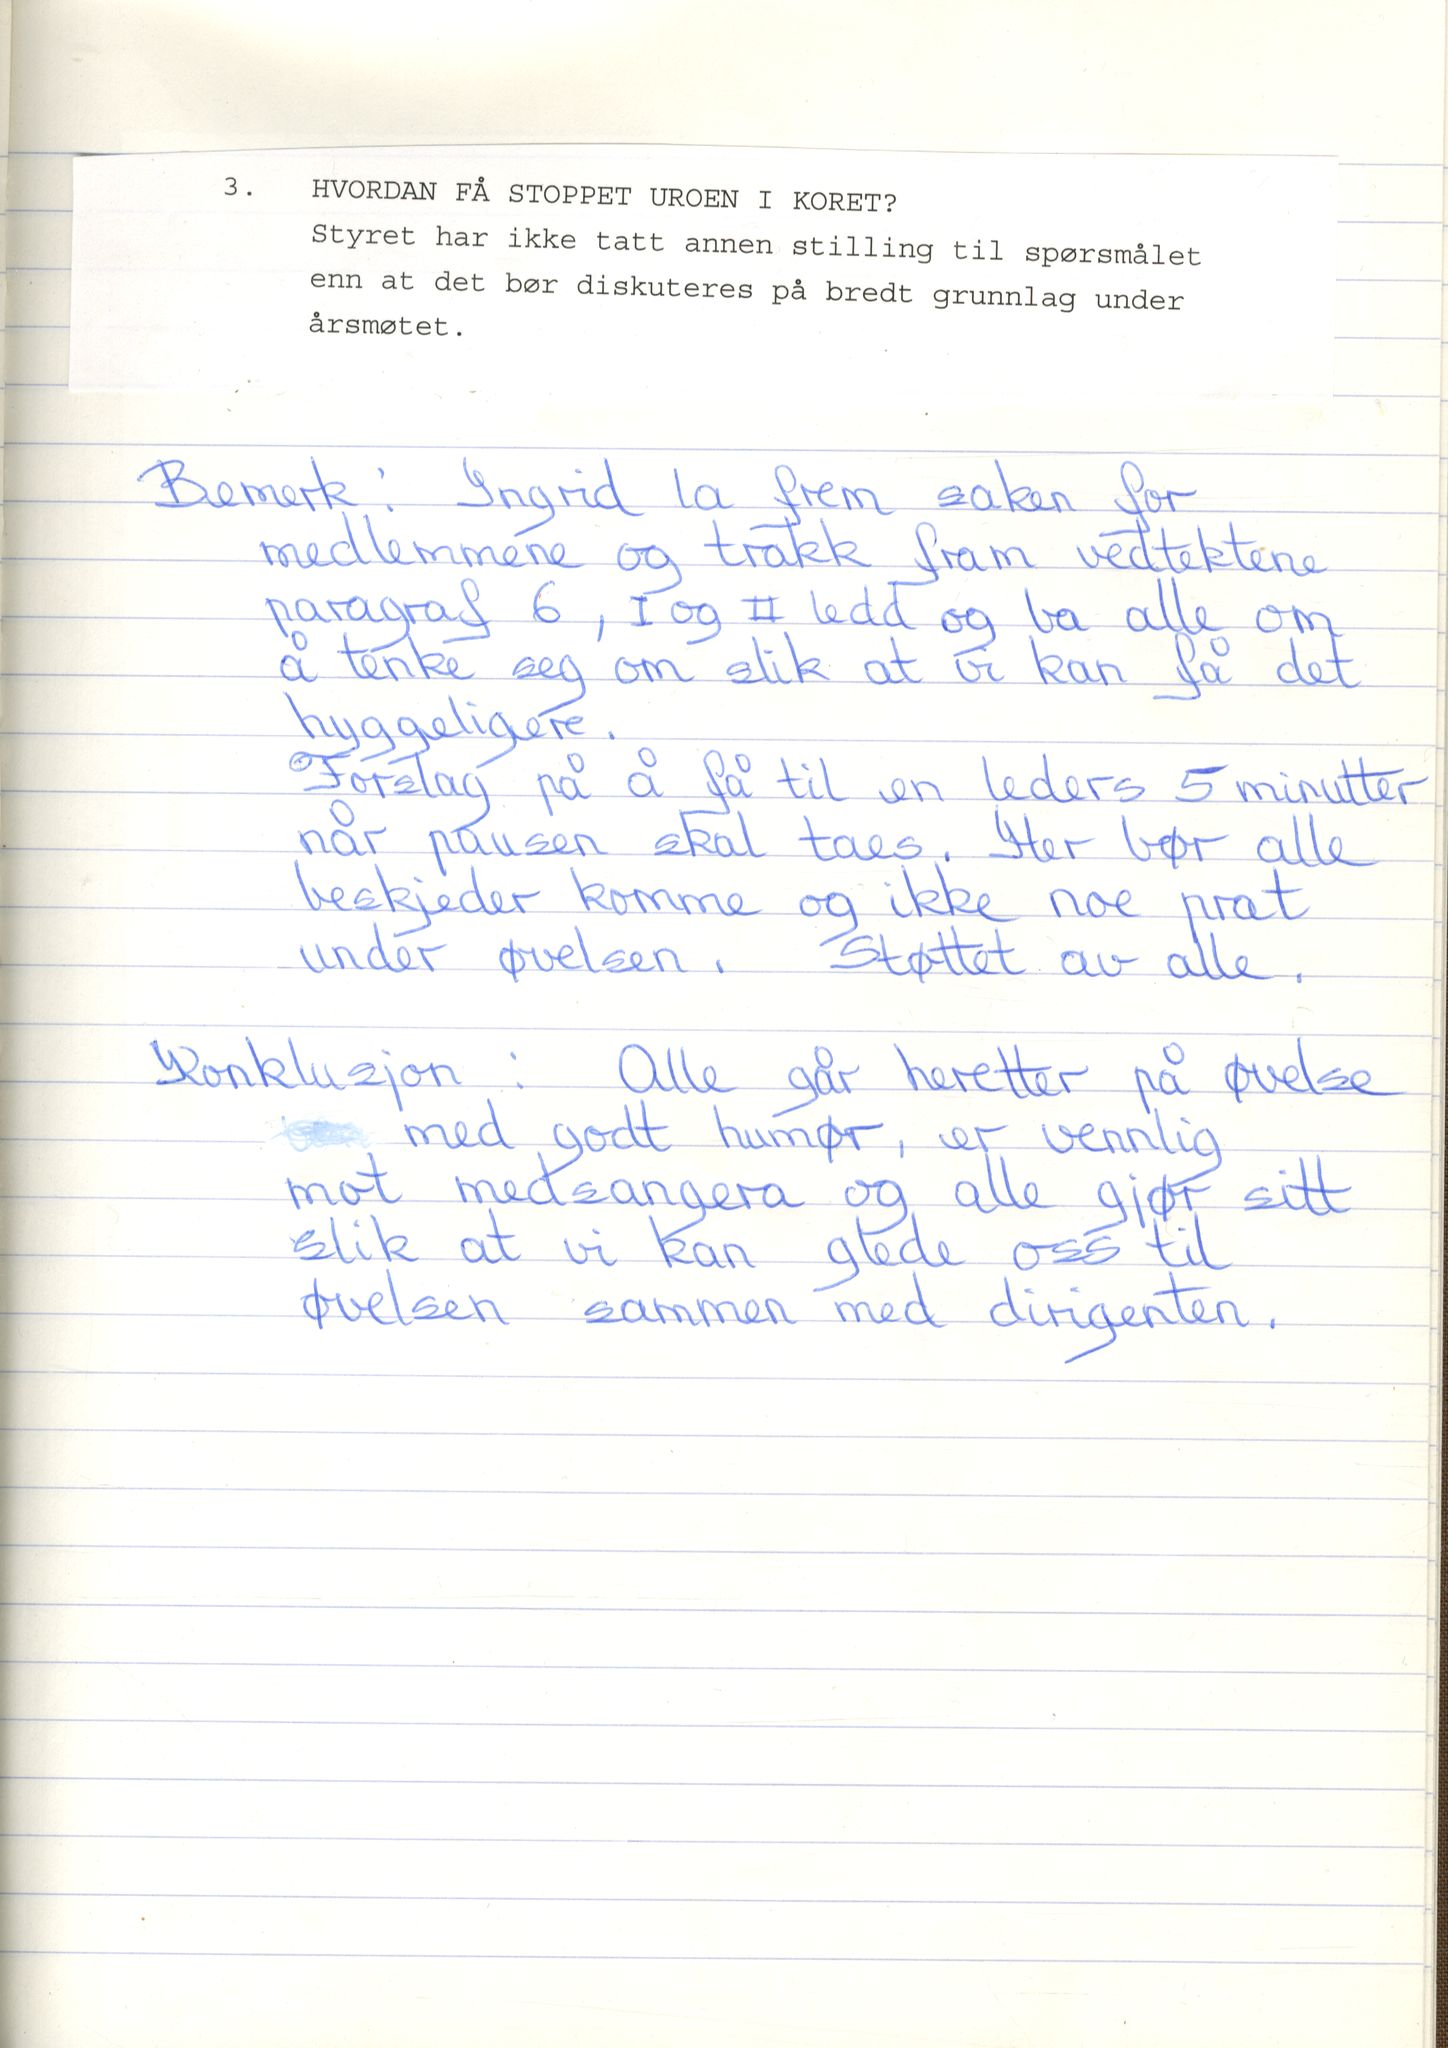 3. HVORDAN FÅ STOPPET UROEN I KORET?
Styret har ikke tatt annen stilling til spørsmålet
enn at det bør diskuteres på bredt grunnlag under
årsmøtet.
Bemerk: Ingrid la frem saken for
medlemmene og trakk fram vedtektene
paragraf 6, I og II ledd og ba alle om
å tenke seg om slik at vi kan få det
hyggeligere.
Forslag på å få til en leders 5 minutter
når pausen skal taes. Her bør alle
beskjeder komme og ikke noe prat
under øvelsen. Støttet av alle.
Konklusjon: Alle går heretter på øvelse
med godt humør, er vennlig
mot medsangera og alle gjør sitt
slik at vi kan glede oss til
øvelsen sammen med dirigenten.